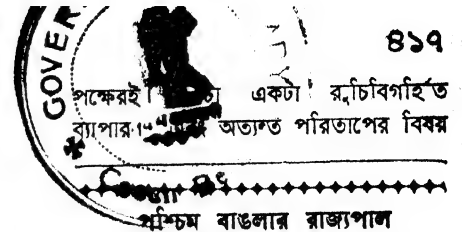 ৪১৭
GOVER
পক্ষেরই একটা রুচিবিগর্হিত
ব্যাপার অত্যন্ত পরিতাপের বিষয়
পশ্চিম বাঙলার রাজ্যপাল